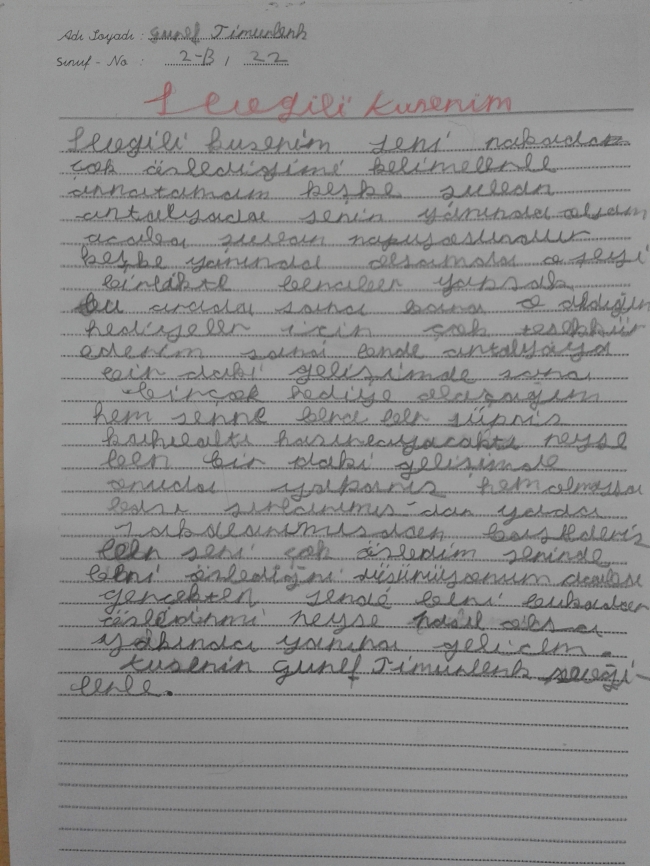 Adı Soyadı: Gunef Timurlenk
Sınıf - No : 2-B / 22
Sevgili kusenim
Sevgili kusenim seni nakadar
çok özlediğimi kelimelerle
annatamam keşke suedn
antalyada senin yanında olsam
acaba suan napıyosundur
keşke yanında olsamda o şeyi
birlikte beraber yapsak
bu arada sana bana o aldığın
hediyeler için çok teşekkür
ederim sana bende antalyaya
bir daki gelişimde sana
birçok hediye alacağım
hem senne bera ber süpris
kahvealtı hasırlayacaktı neyse
ben bir daki gelişimde
onuda yaparıs hem olmassa
başkederis
ben seni çok özledim seninde
beni özlediğni düşünüyorum acaba
gerçekten sende beni bukadar
özledinmi neyse nasıl olsa
yakında yanına gelicem.
kusenin Gunef Timurlenk sevgi-
lerle.